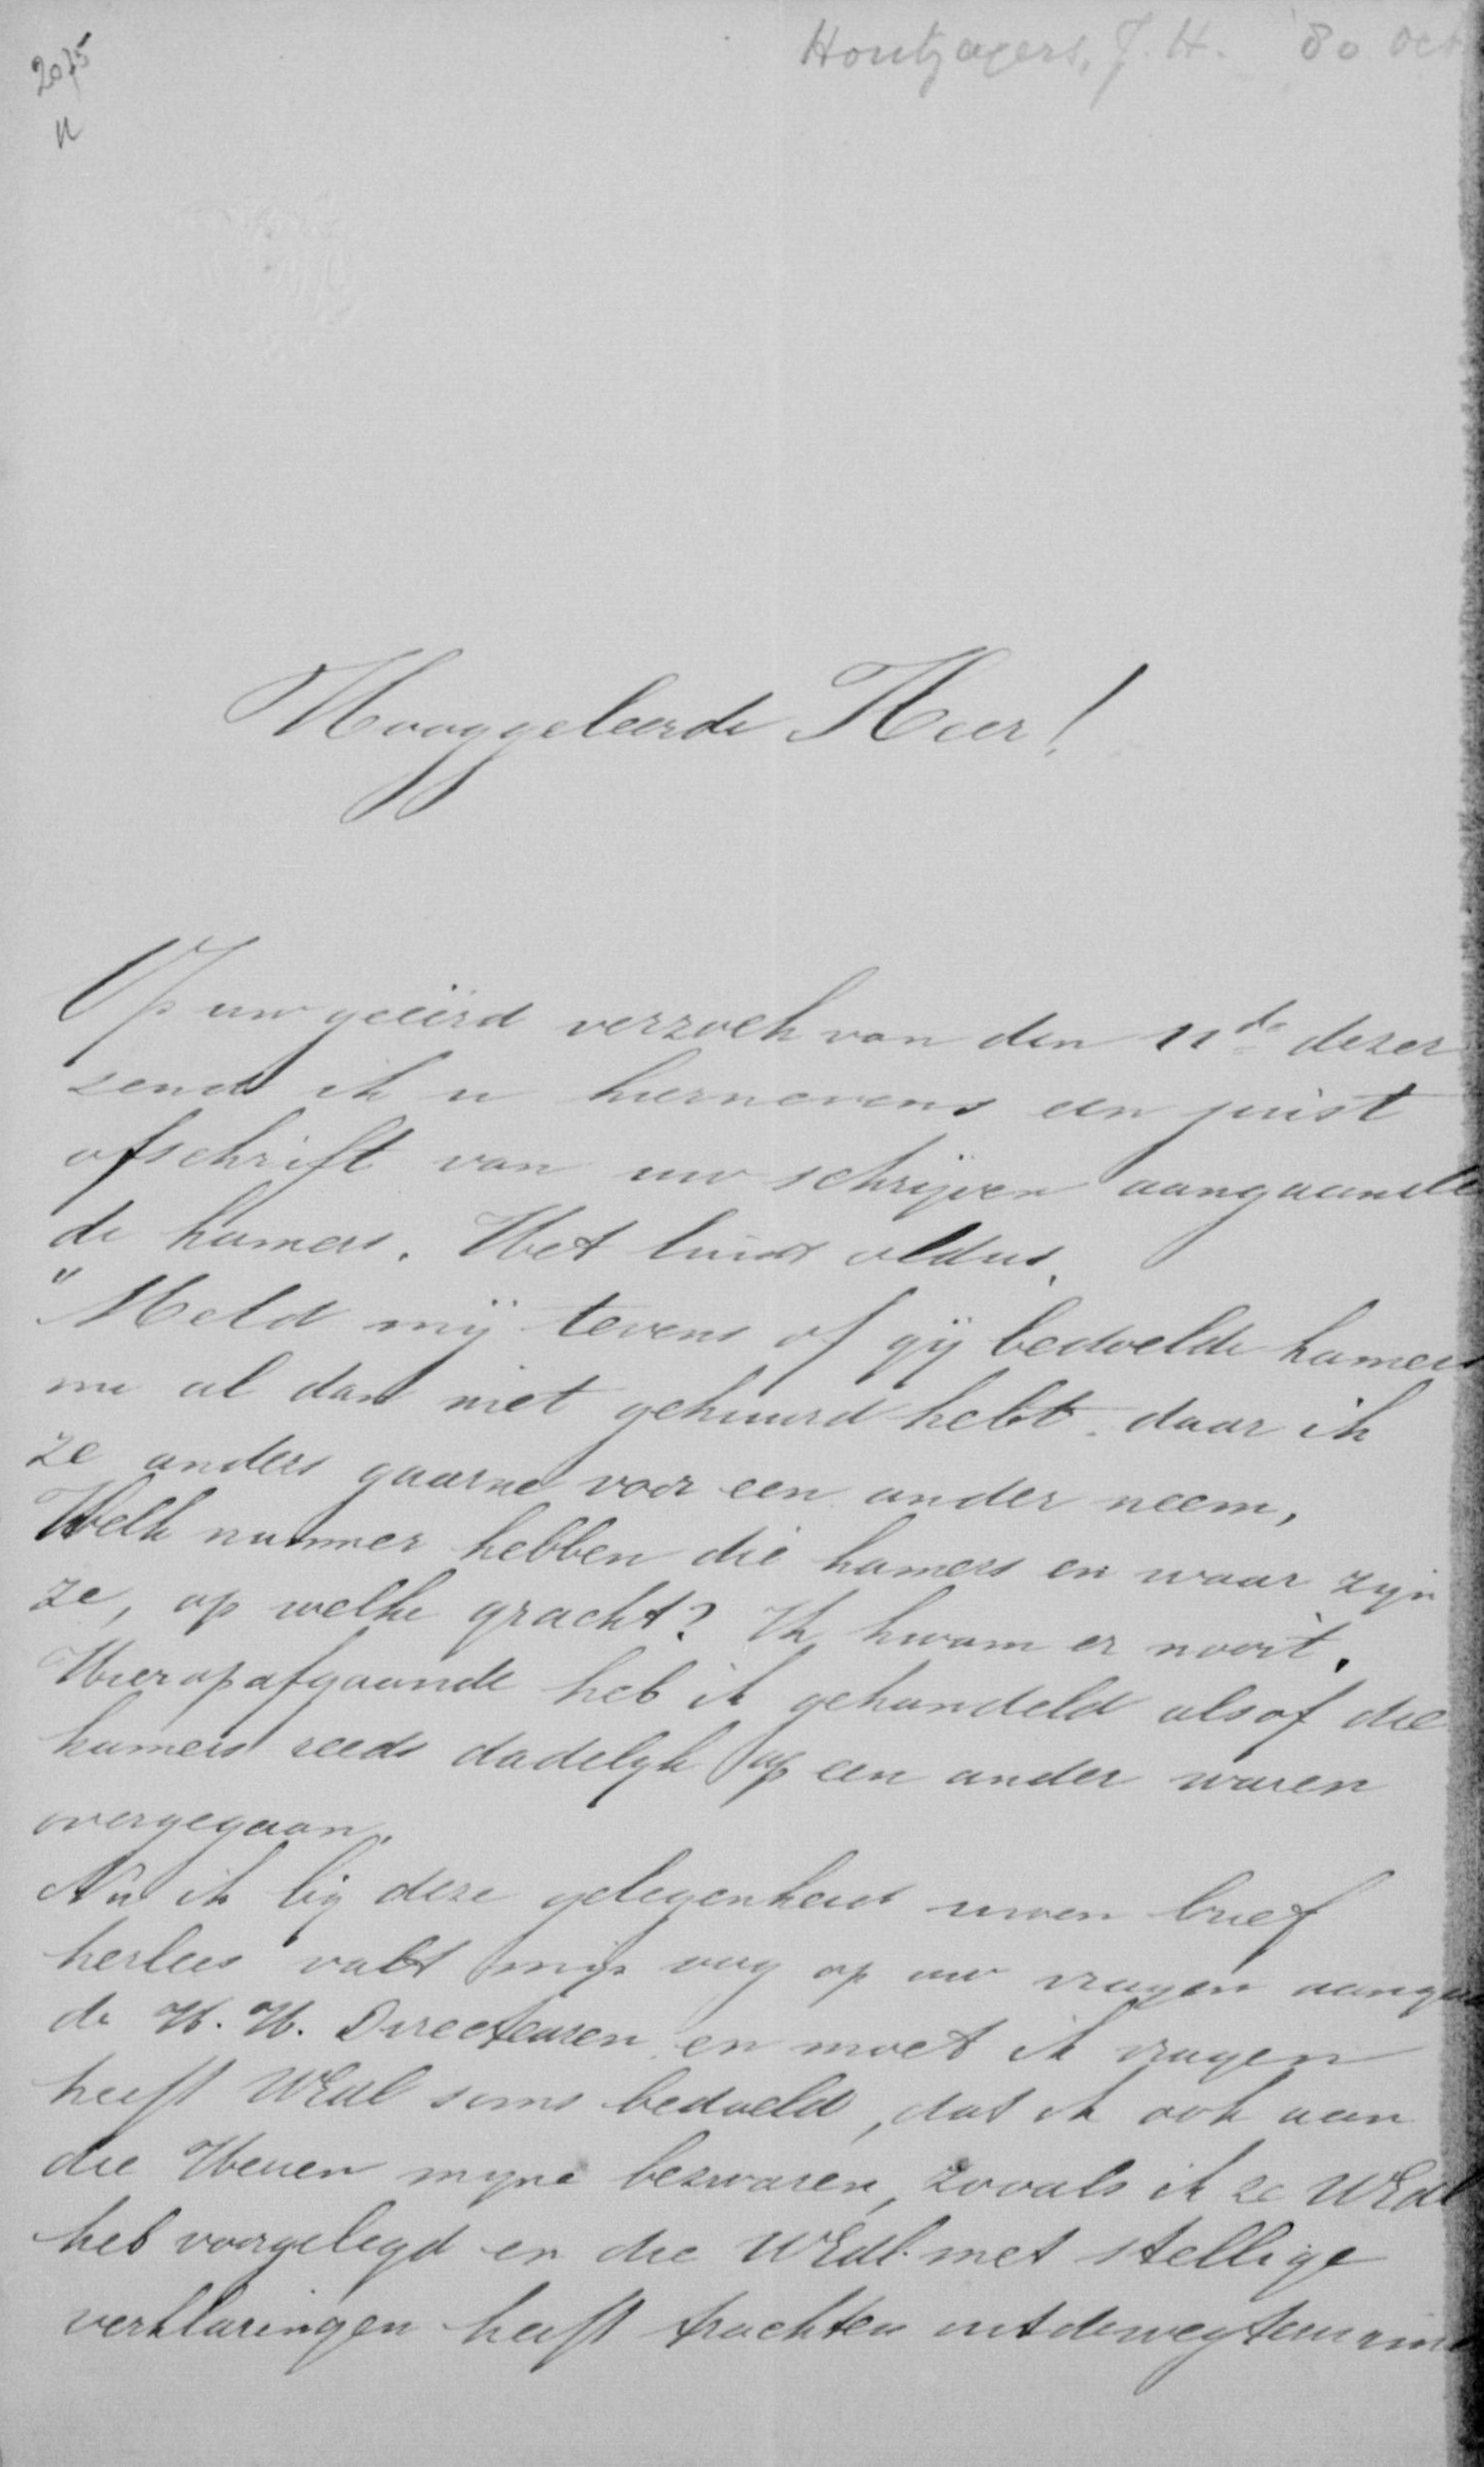 Houtzagers, J. H. '80 Oct
2075
Hooggeleerde Heer!
Op uw geëerd verzoek van den 11de dezer
zend ik u hiernevens een juist
afschrift van uw schrijven aangaande
de kamers. Het luidt aldus.
"Meld mij tevens of gij bedoelde kamers
nu al dan niet gehuurd hebt daar ik
ze anders gaarne voor een ander neem,
Welk nummer hebben die kamers en waar zijn
ze, op welke gracht? Ik kwam er nooit.
Hieropafgaande heb ik gehandeld alsof die
kamers reeds dadelyk op een ander waren
overgegaan.
Nu ik bij deze gelegenheid uwen brief
herlees valt mijn oog op uw vragen
de H. H. Directeuren en moet ik vragen
heeft UEdl soms bedoeld, dat ik ook aan
die Heeren myne bezwaren, zooals ik ze UEdl
heb voorgelegd en die UEdl. met stellige
verklaringen heeft trachten uitdewegte